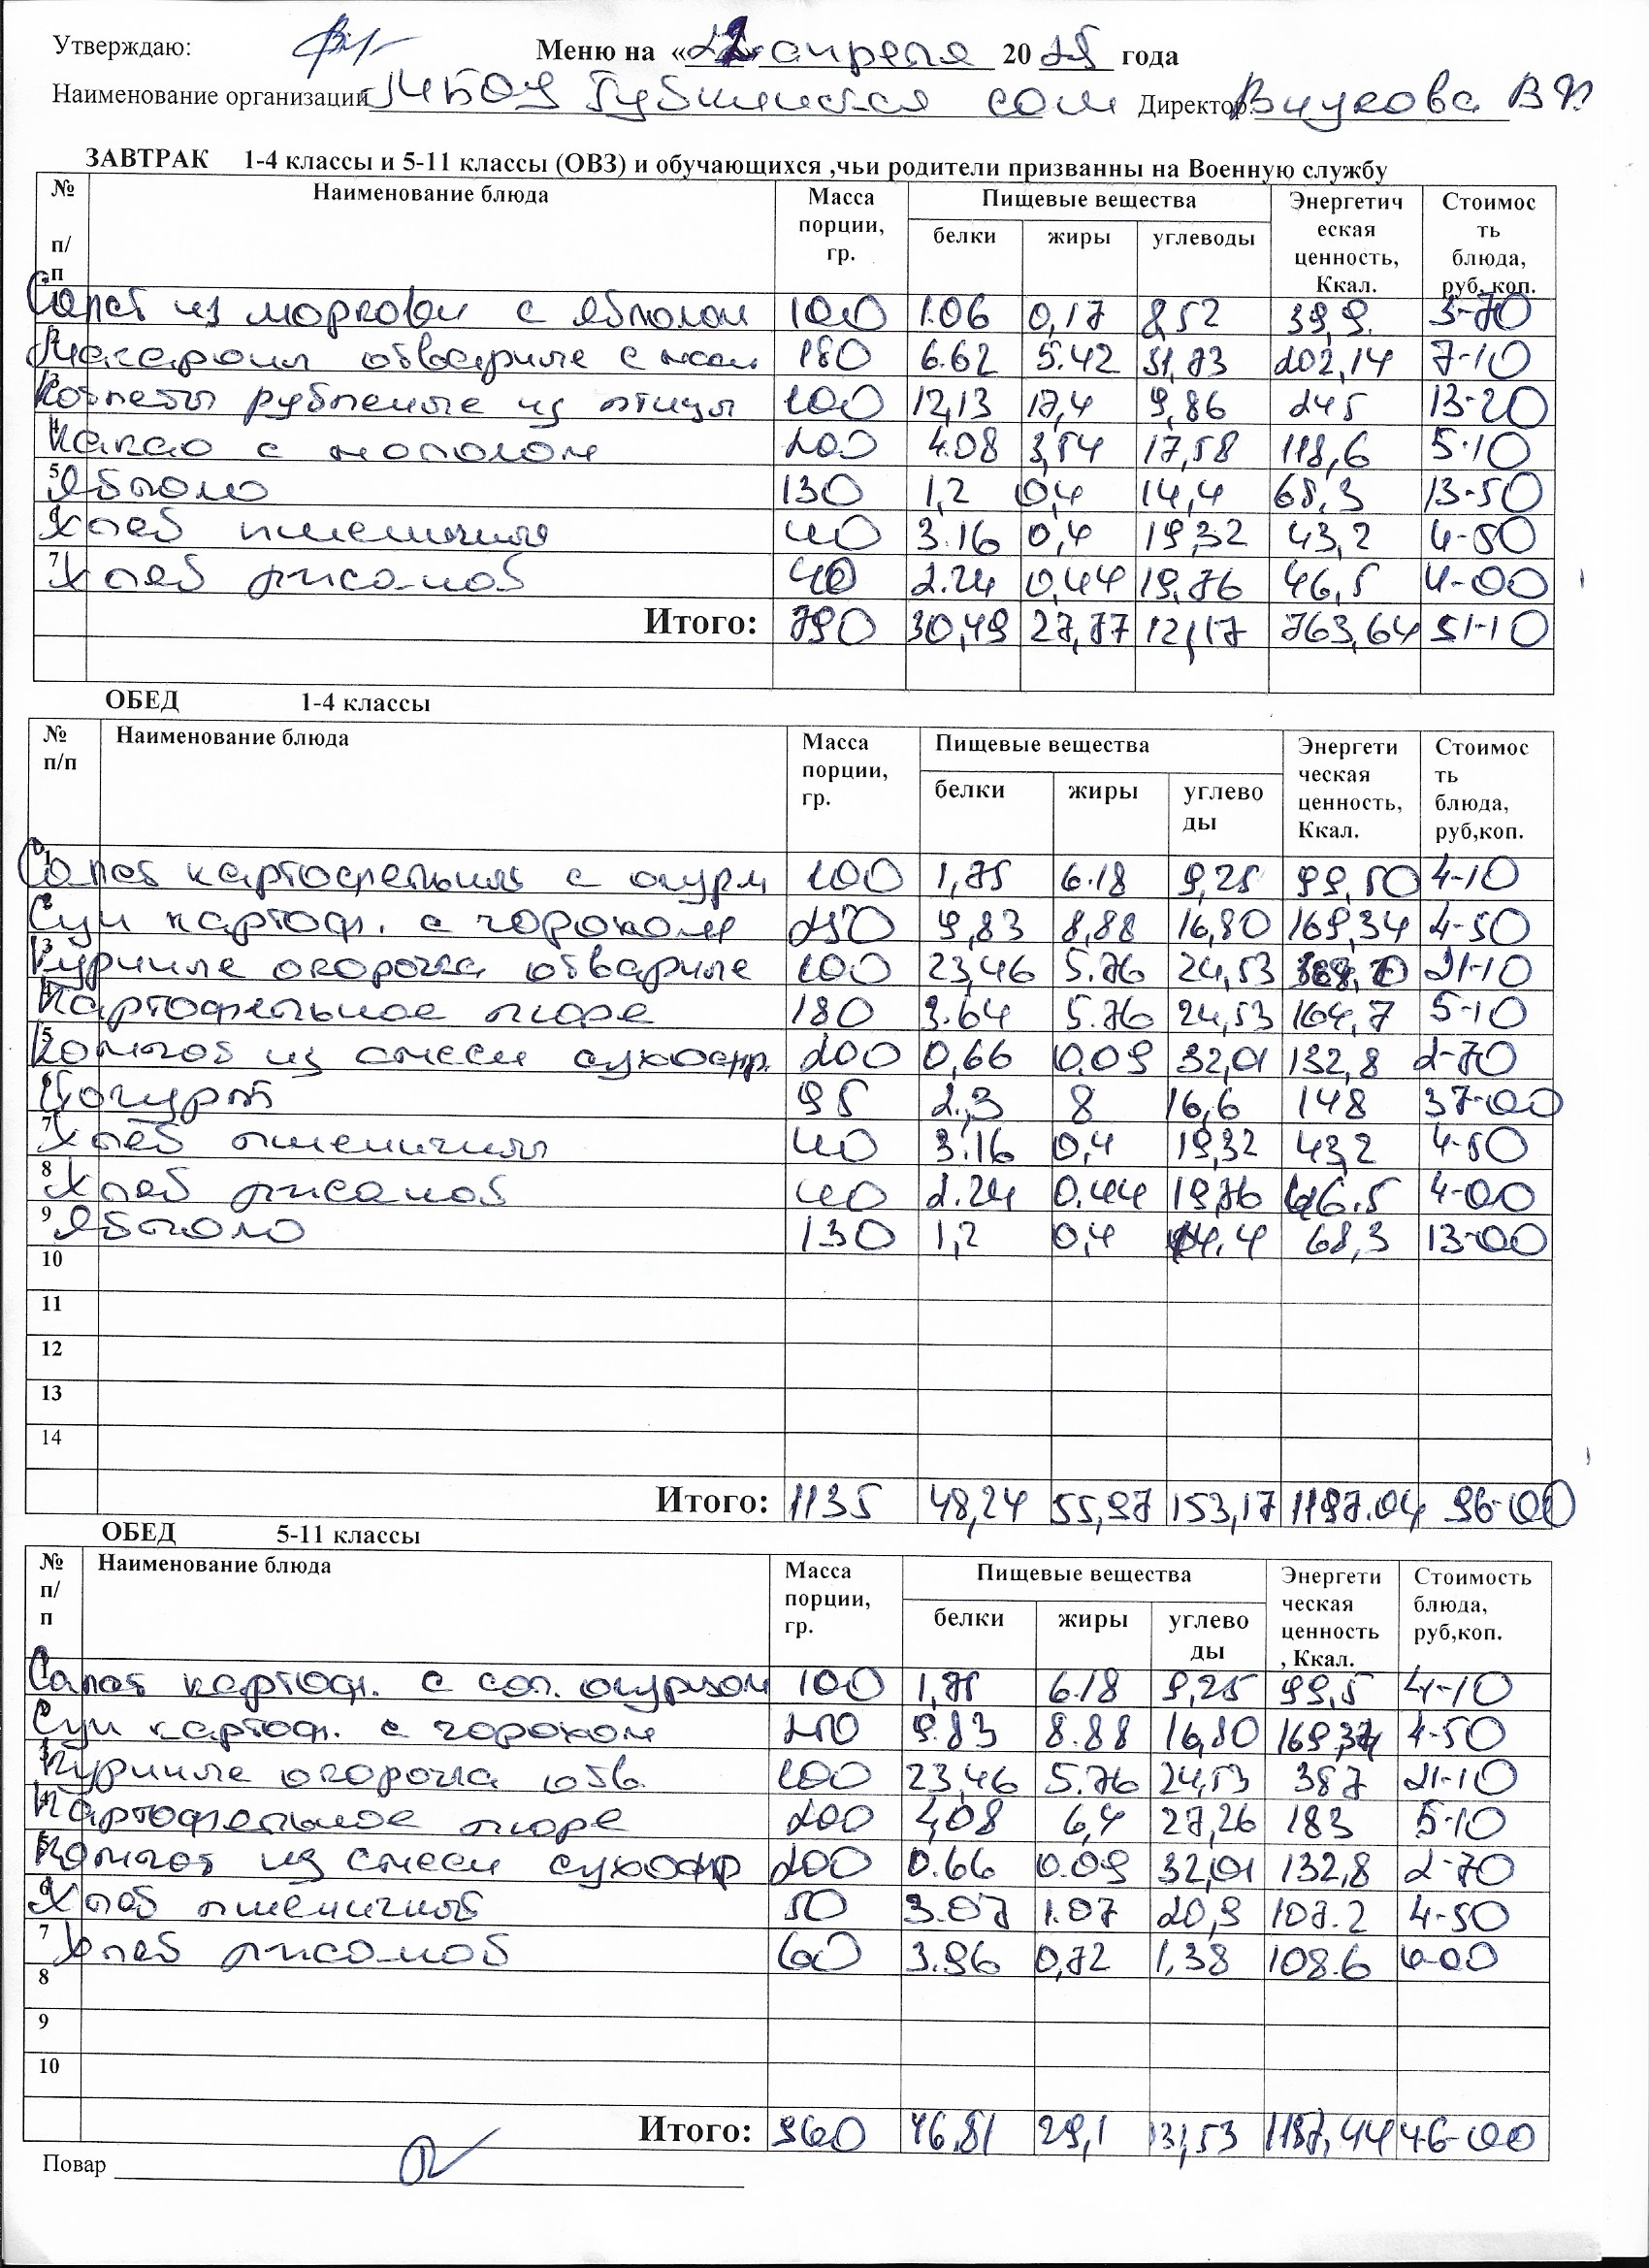 Утверждаю: Меню на « » апреля 20 25 года
Наименование организации МБОУ Губ сош Директор: В Ф
ЗАВТРАК 1-4 классы и 5-11 классы (ОВЗ) и обучающихся ,чьи родители призванны на Военную службу
№ п/п Наименование блюда Масса порции, гр. Пищевые вещества Энергетическая ценность, Ккал. Стоимость блюда, руб,коп.
белки жиры углеводы
1 Салат из моркови с яблоком 100 1.06 0,17 8,52 39,9. 3-70
2 Макароны отварные с мас 180 6.62 5.42 31,73 202,14 7-10
3 Котлеты рубленые из птицы 100 12,13 17,4 9,86 245 13-20
4 Какао с молоком 200 4.08 3,54 17,58 118,6 5-10
5 Яблоко 130 1,2 0,4 14,4 68,3 13-50
6 Хлеб пшеничный 40 3.16 0,4 19,32 43,2 4-50
7 Хлеб ржаной 40 2.24 0,44 19,76 46,5 4-00
Итого: 790 30,49 27,77 121,17 763,64 51-10
ОБЕД 1-4 классы
№ п/п Наименование блюда Масса порции, гр. Пищевые вещества Энергетическая ценность, Ккал. Стоимость блюда, руб,коп.
белки жиры углеводы
1 Салат картофельный с огурц 100 1,75 6.18 9,25 99,50 4-10
2 Суп картоф. с горохом 250 9,83 8,88 16,80 169,34 4-50
3 Куриные окорочка отварные 100 23,46 5.76 24,53 21-10
4 Картофельное пюре 180 3.64 5.76 24,53 164,7 5-10
5 Компот из смеси сухофр. 200 0,66 0,09 32,01 132,8 2-70
6 Йогурт 95 2,3 8 16,6 148 37-00
7 Хлеб пшеничный 40 3.16 0,4 19,32 43,2 4-50
8 Хлеб ржаной 40 2.24 0.44 19,76 46.5 4-00
9 Яблоко 130 1,2 0,4 14.4 68,3 13-00
10
11
12
13
14
Итого: 1135 48,24 55,97 153,17 1197.04 96-00
ОБЕД 5-11 классы
№ п/п Наименование блюда Масса порции, гр. Пищевые вещества Энергетическая ценность, Ккал. Стоимость блюда, руб,коп.
белки жиры углеводы
1 Салат картоф. с сол. огурцом 100 1,75 6.18 9,25 99,5 4-10
2 Суп картоф. с горохом 250 9.83 8.88 16,80 169,34 4-50
3 Куриные окорочка отв. 100 23,46 5.76 24,53 387 21-10
4 Картофельное пюре 200 4,08 6,4 27,26 183 5-10
5 Компот из смеси сухофр 200 0.66 0.09 32,01 132,8 2-70
6 Хлеб пшеничный 50 3.07 1.07 20,9 107.2 4-50
7 Хлеб ржаной 60 3.96 0,72 1,38 108.6 4-00
8
9
10
Итого: 960 46,81 29,1 131,53 1187,44 46-00
Повар